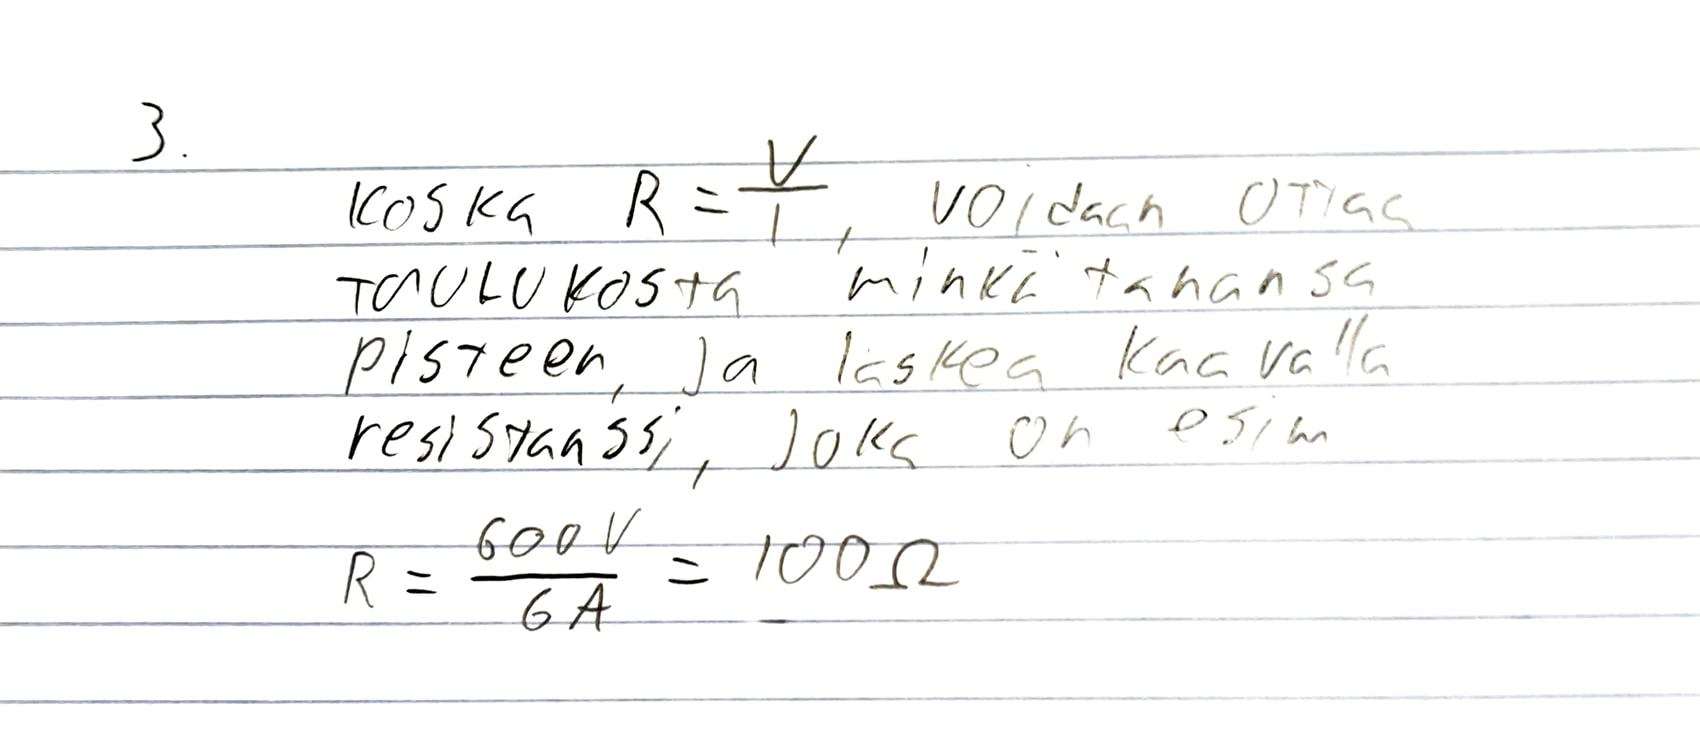 3.
Koska R = V/I, voidaan ottaa
taulukosta minkä tahansa
pisteen, ja laskea kaavalla
resistanssi, joka on esim
R = 600V/6A = 100Ω